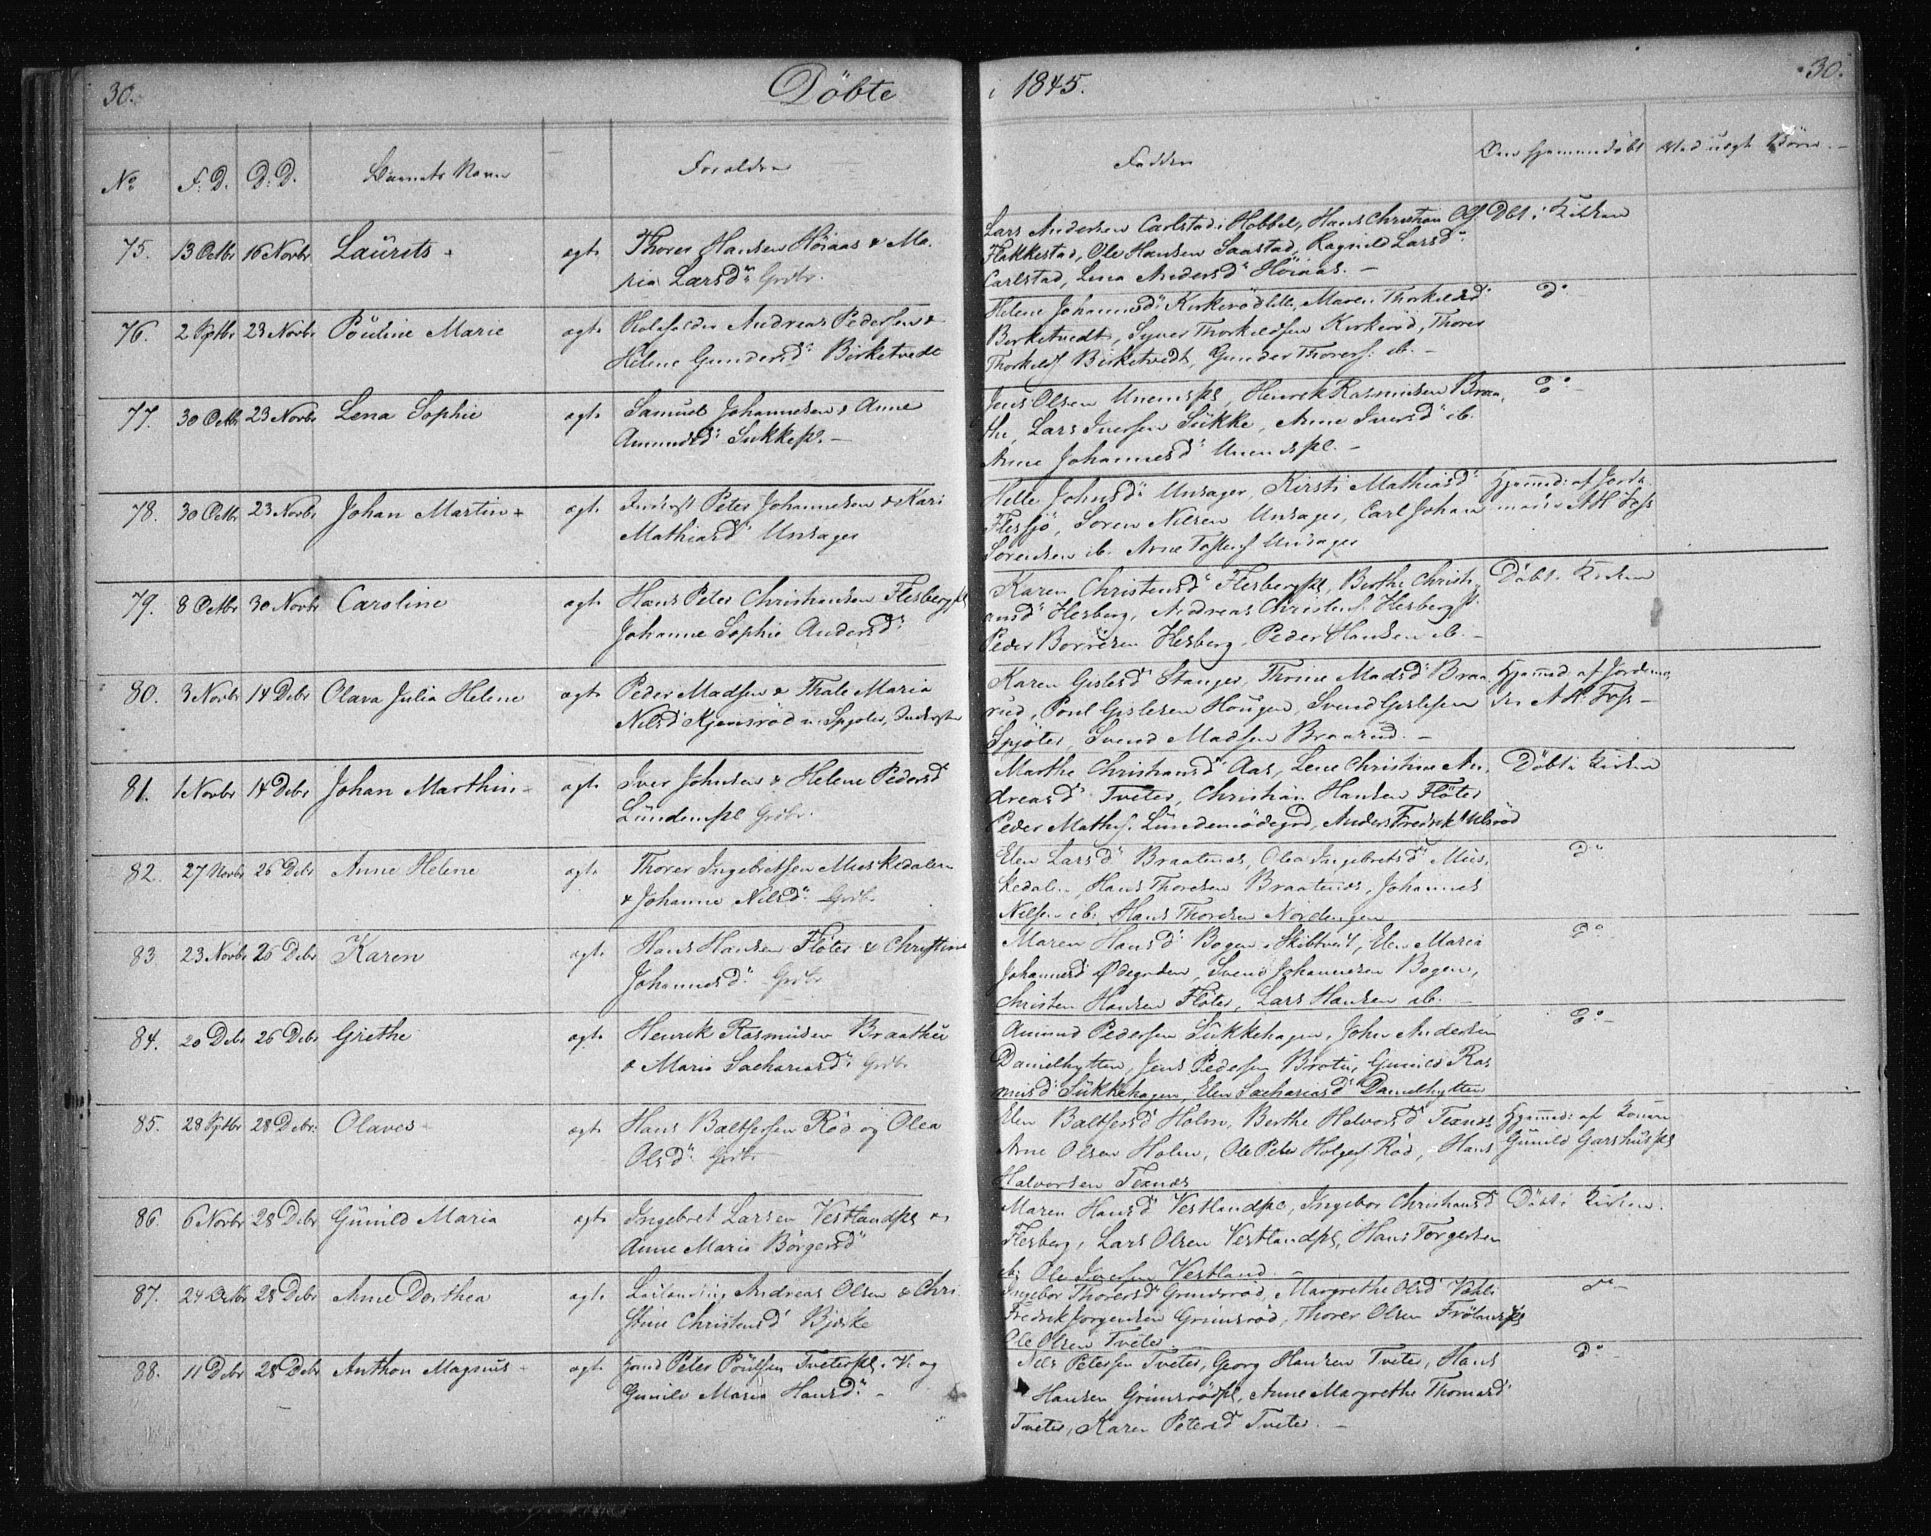 30. Döbte i 1845. 30.
No F. D. D. D. Barnets Navn Forældre Faddere Om hjemmedöbt Med uægte Börn
75. 13 Octbr 16 Novbr Laurits ægte Thorer Hansen Höiaas & Ma-
ria Larsd. Grdbr.
Lars Andersen Carlstad i Hobbel, Hans Christian Ols. Döbt i Kirken
Flakkestad, Ole Hansen Saastad, Ragnild Larsd.
Carlstad, Lena Andersd. Höiaas. -
76. 2 Sptbr 23 Novbr Pouline Marie ægte Andreas Pedersen &
Helene Gundersd. Birketvedt
Helene Johannesd. Kirkeröd, Maren Thorkildsd. do
Birketvedt, Syver Thorkildsen Kirkeröd, Thorer
Thorkilds. Birketvedt, Gunder Thorers. ib. -
77. 30 Octbr 23 Novbr Lena Sophie ægte Samuel Johannesen & Anne
Amundsd. Sukkepl. -
Jens Olsen Unenspl, Henrik Rasmusen Braa- do
the, Lars Iversen Sukke, Anne Iversd. ib.
Anne Johannesd. Unenspl. -
78. 30 Octbr 23 Novbr Johan Martin + ægte Inderst Peter Johannesen & Kari
Mathiasd. Unsager
Helle Johnsd. Unsager, Kirsti Mathiasd. Hjemmed. af Jorda
Flessjö, Soren Nilsen Unsager, Carl Johan moder AK Foss
Sorensen ib. Arne Unsager
79. 8 Octbr 30 Novbr Caroline ægte Hans Peter Christiansen Flesbergpl
Johanne Sophie Andersd.
Karen Christensd. Flesbergpl, Berthe Christi- Döbt i Kirken
ansd. Hesberg, Andreas Christens. Hesbergpl.
Peder Borresen Hesberg, Peder Hansen ib. -
80. 3 Novbr 14 Debr Olava Julia Helene ægte Peder Madsen & Thale Maria
Nilsd. Kjensröd u. Spjoter, Inderster
Karen Gislesd. Stanger, Thorine Madsd. Braa- Hjemmed. af Jordemo-
rud, Poul Gislesen Hougen, Svend Gislesen der AK Foss -
Spjoter, Svend Madsen Braarud. -
81. 1 Novbr 14 Debr Johan Marthin ægte Iver Johnsen & Helene Pedersd.
Lundempl Grdbr.
Marthe Christiansd. Aas, Lene Christine An- Döbt i Kirken
dreasd. Tveter, Christian Hansen Flöter
Peder Maths. Lundemödegrd, Anders Fredrik Ulsröd
82. 27 Novbr 26 Debr Anne Helene ægte Thorer Ingebretsen Muskedalen
& Johanne Nilsd. Grdb.
Elen Larsd. Braatenes, Olea Ingebretsd. Mus- do
kedalen, Hans Thoresen Braatenes, Johannes
Nilsen ib. Hans Thoresen Nordengen
83 23 Novbr 26 Debr Karen ægte Hans Hansen Flöter & Christine
Johannesd. Grdbr
Maren Hansd. Bogen i Skibtvet, Elen Maria do
Johannesd. Ødegarden, Svend Johannesen Bogen,
Christen Hansen Flöter, Lars Hansen ib. -
84. 20 Debr 26 Debr Grethe ægte Henrik Rasmusen Braathen
& Maria Sachariasd. Grdbr.
Amund Pedersen Sukkehagen, John Andersen do -
Danielhytten, Jens Pedersen Bröten, Gunild Ras-
musd. Sukkehagen, Elen Sachariasd. Danielhytten
85. 28 Sptbr 28 Debr. Olaves ægte Hans Baltsersen Röd og Olea
Olsd. Grdbr
Elen Baltsersd. Holm, Berthe Halvorsd. Texnes Hjemmed. af Konen
Arne Olsen Holm, Ole Peter Holgers. Röd, Hans Gunild Garshuspl
Halvorsen Texnes
86. 6 Novbr 28 Debr Gunild Maria ægte Ingebret Larsen Vestlandpl &
Anne Maria Börgersd.
Maren Hansd. Vestlandpl, Ingebor Christiansd. Döbt i Kirken.
Flesberg, Lars Olsen Vestlandpl, Hans Torgersen
ib. Ole Iversen Vestland. -
87. 24 Octbr 28 Debr Anne Dorthea ægte Andreas Olsen & Chri-
stine Christensd. Bjerke
Ingebor Thorersd. Grimsröd, Margrethe Olsd. do -
Fredrik Jorgensen Grimsröd, Thorer Olsen Frölandspl
Ole Olsen Tveter
88. 11 Debr 28 Debr Anthon Magnus ægte Peter Poulsen Tveterpl. i V. og
Gunild Maria Hansd. -
Nils Petersen Tveter, Georg Hansen Tveter, Hans do -
Hansen Grimsrödpl, Anne Margrethe Thomasd.
Tveter, Karen Petersd. Tveter. -